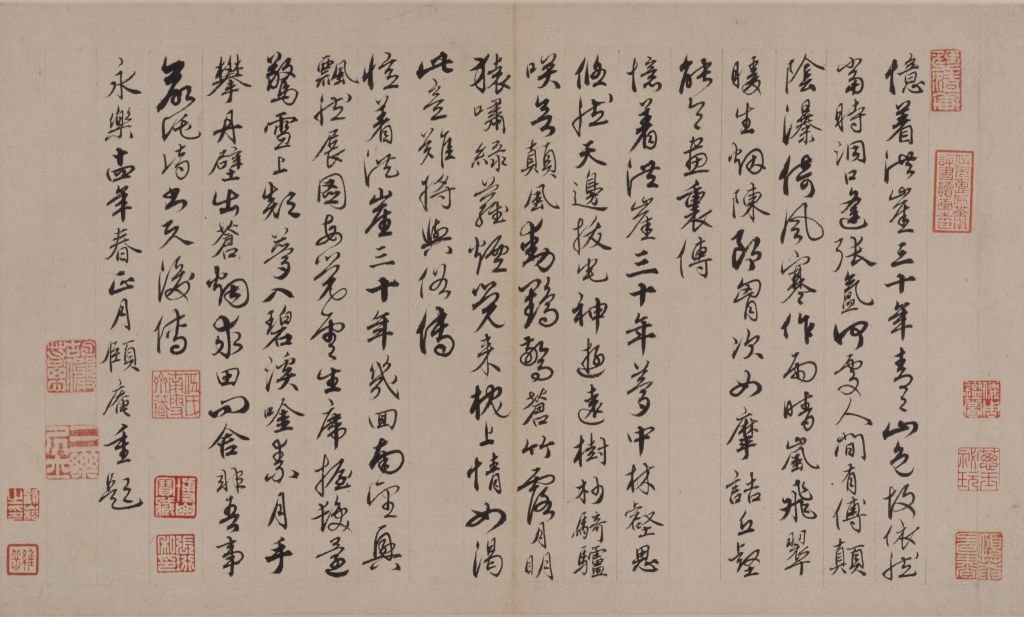 憶着洪崖三十年青々山色故依然
當時洞口逢張氳何處人間有傅顛
陰瀑倚風寒作雨晴嵐飛翠
暖生烟陳郎胷次如摩詰丘壑
能令畫裏傳
憶着洪崖三十年夢中林壑思
翛然天邊拔宅神遊遠樹杪騎驢
咲若顛風動鶴翻蒼竹露月明
猿嘯綠蘿煙覺来枕上情如渴
此意難將與俗傳
憶着洪崖三十年幾回南望興
飄然展圖每覺雲生席握髮還
驚雪上顛夢入碧溪吟素月手
攀丹壁出蒼烟求田問舍非吾事
後傳
永樂十四年春正月頤庵重題